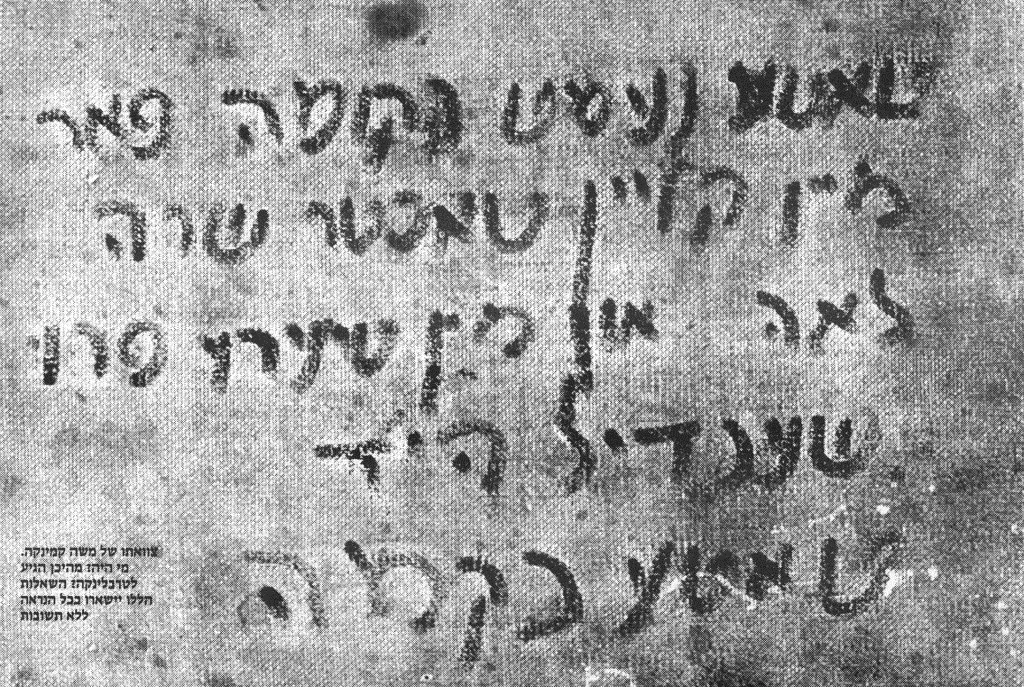 נעמט נקמה פאר
מיין קליין טאכטער שרה
לאה אין מיין פרוי
שענדיל הי״ד
נקמה
צוואתו של משה קמינקה.
מי היה? מהיכן הגיע
לטרבלינקה? השאלות
הללו יישארו ככל הנראה
ללא תשובות